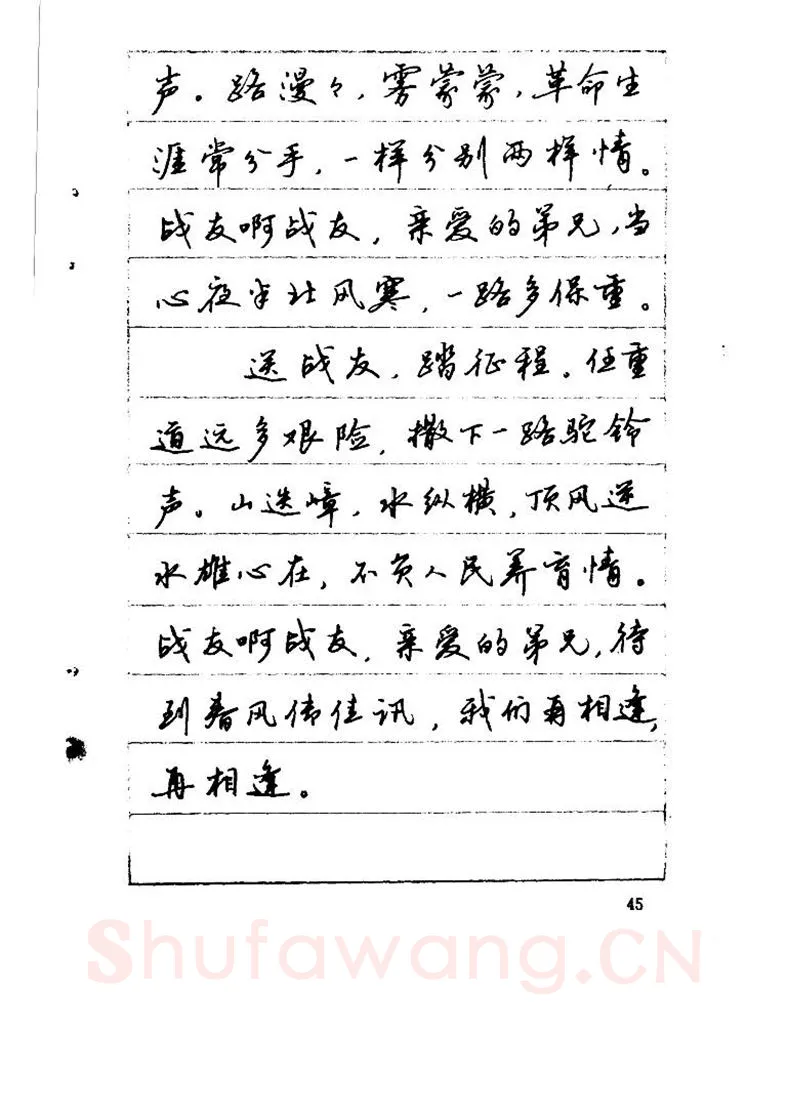 声。路漫々，雾蒙蒙，革命生
涯常分手，一样分别两样情。
战友啊战友，亲爱的弟兄，当
心夜半北风寒，一路多保重。
送战友，踏征程。任重
道远多艰险，撒下一路驼铃
声。山迭嶂，水纵横，顶风逆
水雄心在，不负人民养育情。
战友啊战友，亲爱的弟兄，待
到春风传佳讯，我们再相逢，
再相逢。
45
Shufawang.CN